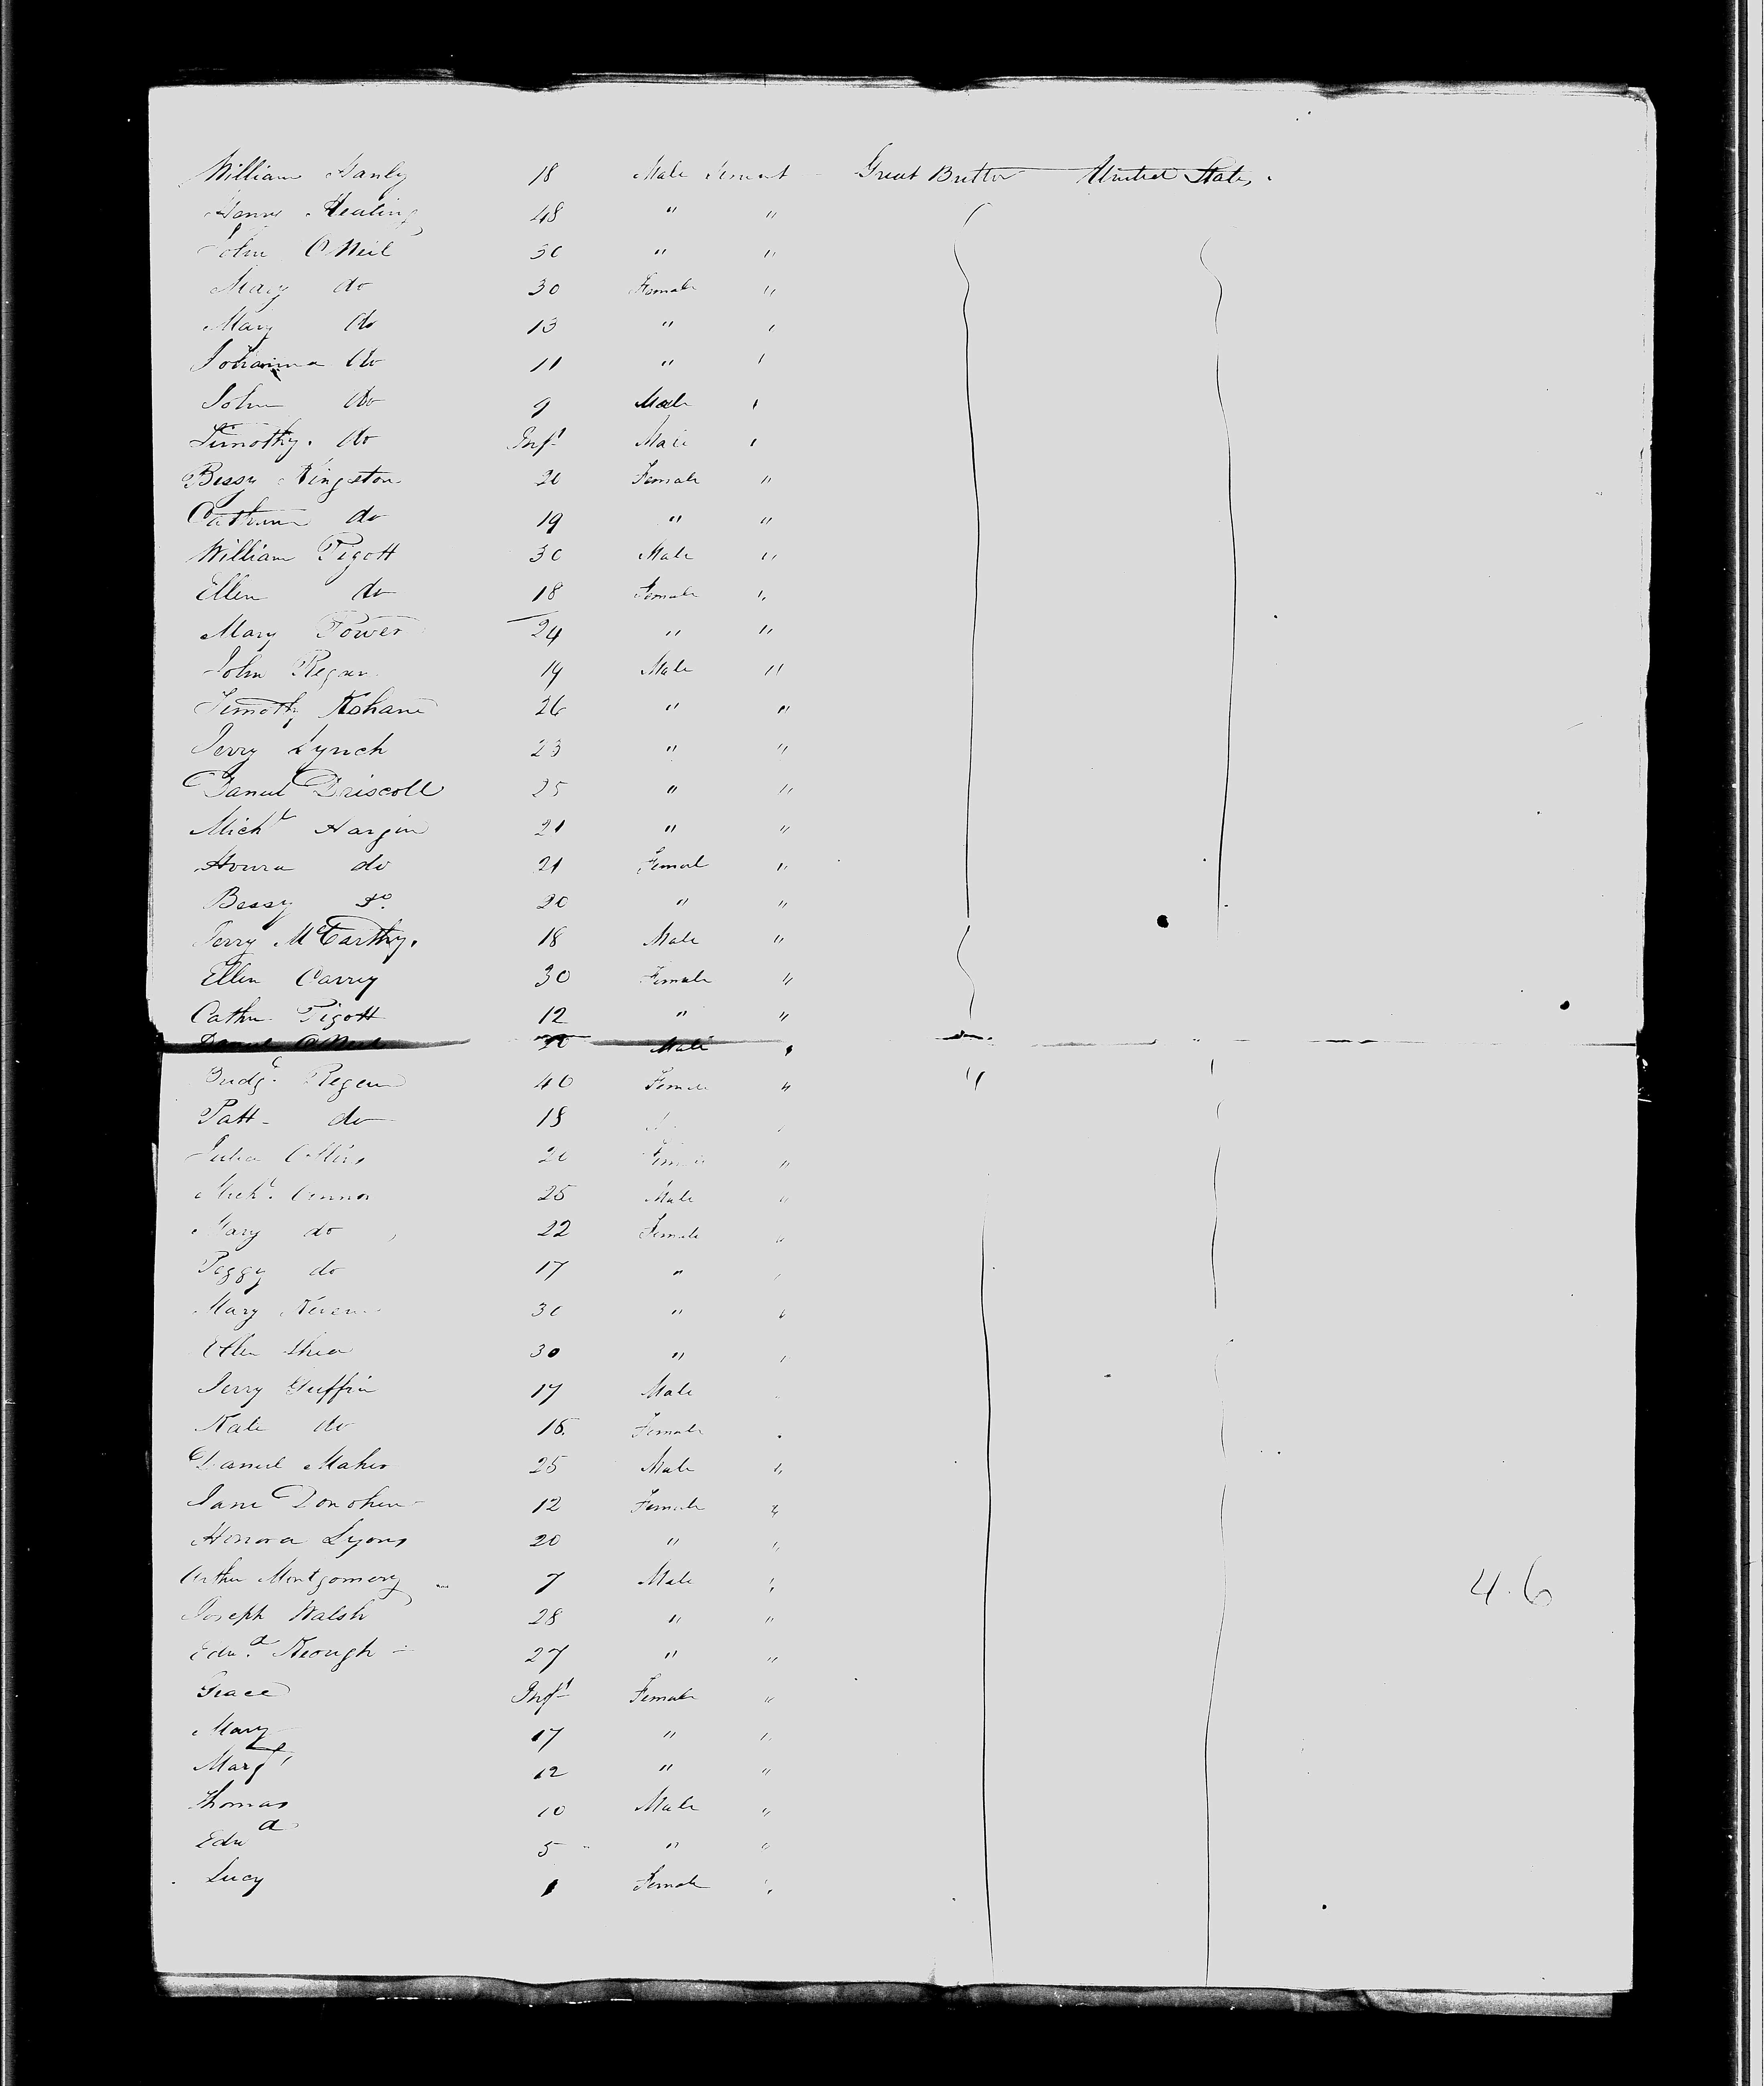 William Hanly 18 Male Servant Great Britton United States.
Henry Healing 48 " "
John ONeil 30 " "
Mary do 30 Female "
Mary do 13 " "
Johanna do 11 " "
John do 9 Male "
Timothy. do Inft Male "
Bessy Kingston 20 Female "
do 19 " "
William Pigott 30 Male "
Ellen do 18 Female "
Mary Power 24 " "
John Regan 19 Male "
Timothy Kohane 26 " "
Jerry Lynch 23 " "
Daniel Driscoll 25 " "
Michl Hargin 21 " "
Honra do 21 Femal "
Bessy Do. 20 " "
Jerry McCarthy. 18 Male "
Ellen Carrey 30 Female "
Cathn Pigott 12 " "
ONeil Male "
Bridgt Regan 40 Female "
Patt - do 18
Julia 20 "
Michl. Connor 25 Male "
Mary do 22 Female "
Peggy do 17 " "
Mary 30 " "
Ellen Shea 30 " "
Jerry Griffin 17 Male
Kate do 15. Female "
Daniel Maher 25 Male "
Jane Donohue 12 Female "
Honora Lyons 20 " "
Arthur Montgomery 7 Male "
4.6
Joseph Walsh 28 " "
Edwd. Keough - 27 " "
Grace Inft Female "
Mary 17 " "
Margt 12 " "
Thomas 10 Male "
Edwd 5 " "
Lucy 1 Female "